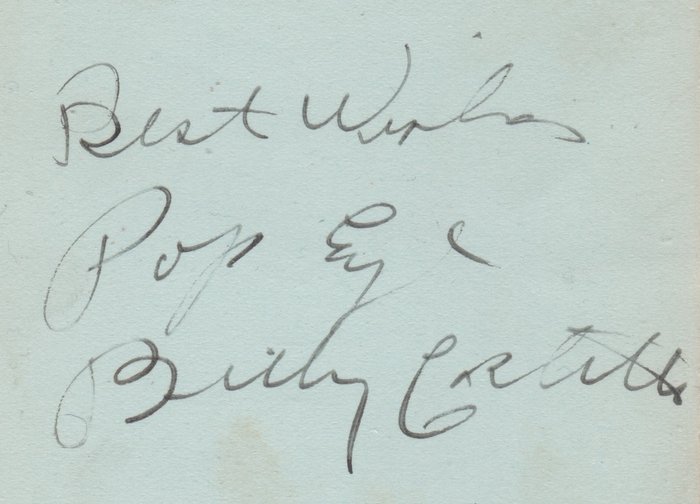 Best Wishes
Pop Eye
Billy Costello